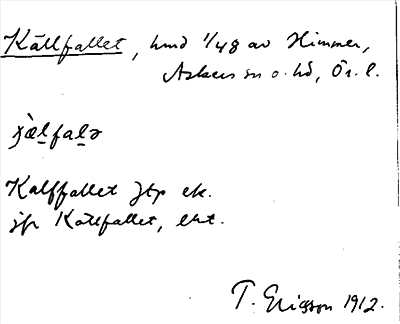 Källfallet, hmd 1/48 av Himmer,
Askers sn o. hd, Ör. l.
Kalffallet Jtp ek.
jfr Källfallet, ekt.
T. Ericsson 1912.